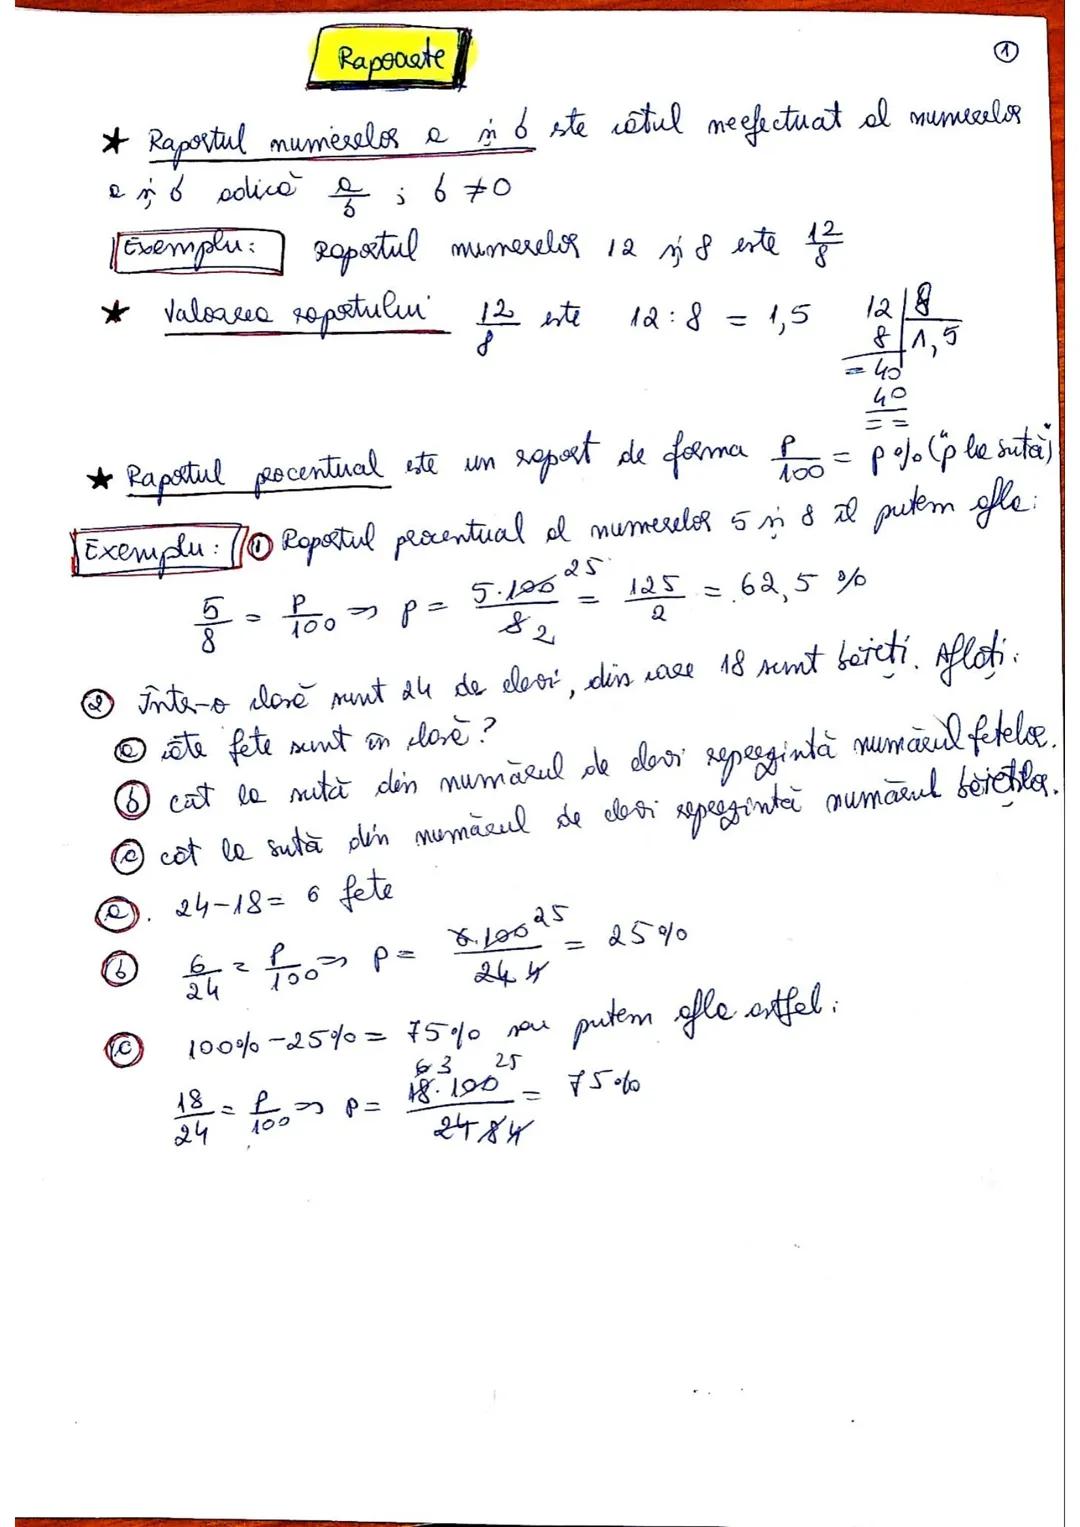 Rapoarte
①
★ Raportul numerelor a și b este câtul neefectuat al numerelor
a și b adică a/b ; b ≠ 0
Exemplu: raportul numerelor 12 și 8 este 12/8
★ Valoarea raportului 12/8 este 12 : 8 = 1,5
12 | 8
8 | 1,5
= 40
40
= =
★ Raportul procentual este un raport de forma p/100 = p% ("p la sută")
Exemplu: ① Raportul procentual al numerelor 5 și 8 îl putem afla:
5/8 = p/100 ⇒ p = 5·100 25 / 8 2 = 125/2 = 62,5 %
② Într-o clasă sunt 24 de elevi, din care 18 sunt băieți. Aflați:
ⓐ câte fete sunt în clasă?
ⓑ cât la sută din numărul de elevi reprezintă numărul fetelor.
ⓒ cât la sută din numărul de elevi reprezintă numărul băieților.
ⓐ. 24-18= 6 fete
ⓑ 6/24 = p/100 ⇒ p = 6·100 25 / 24 4 = 25%
ⓒ 100% - 25% = 75% sau putem afla astfel:
18/24 = p/100 ⇒ p = 18 6 3 · 100 25 / 24 8 4 = 75%